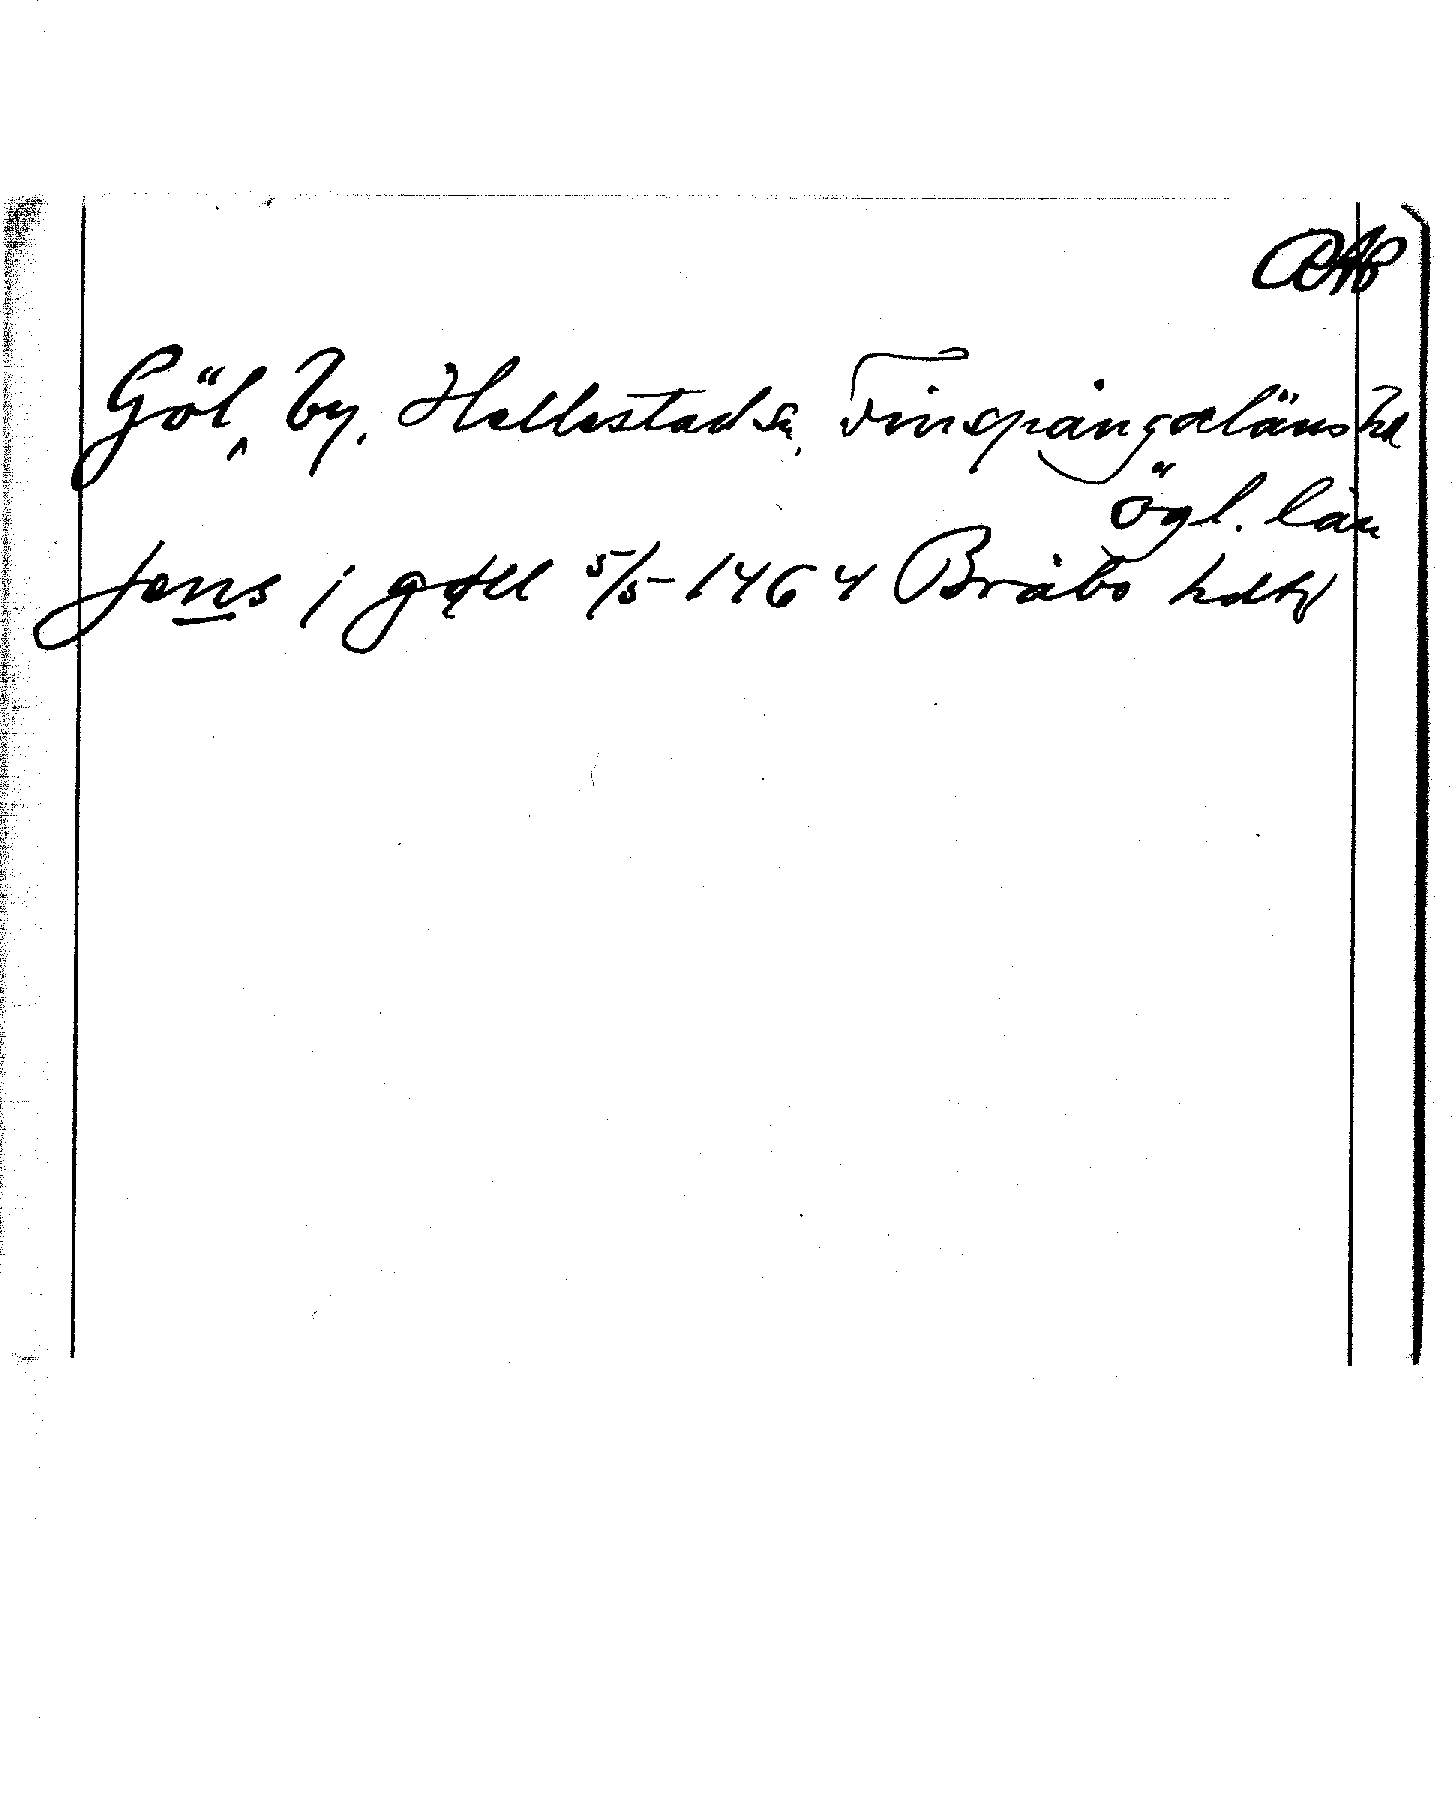 Göl, by, Hellestads sn, Finspångaläns hd
Ögl. län
Jens i gøll 5/5 1464 Bråbo hdtg